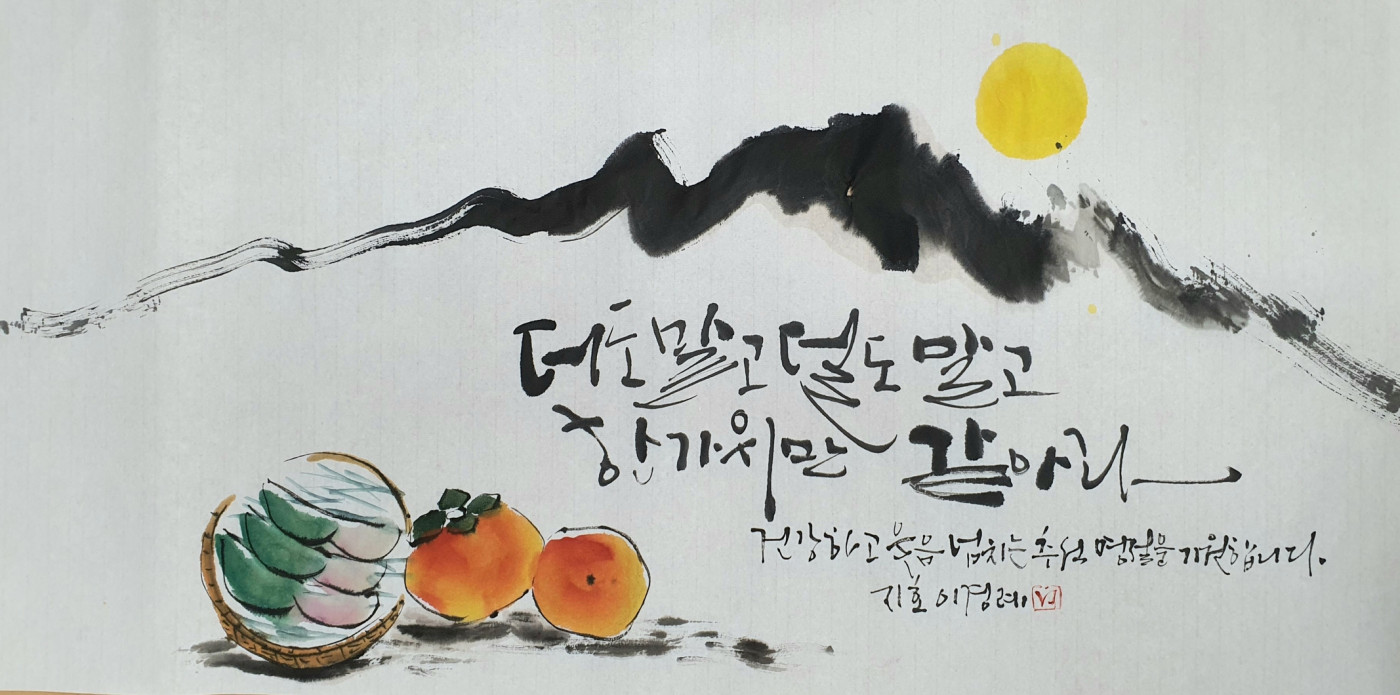 더도 말고 덜도 말고
한가위만 같아라
건강하고 웃음 넘치는 추석 명절을 기원합니다.
지호 이경례